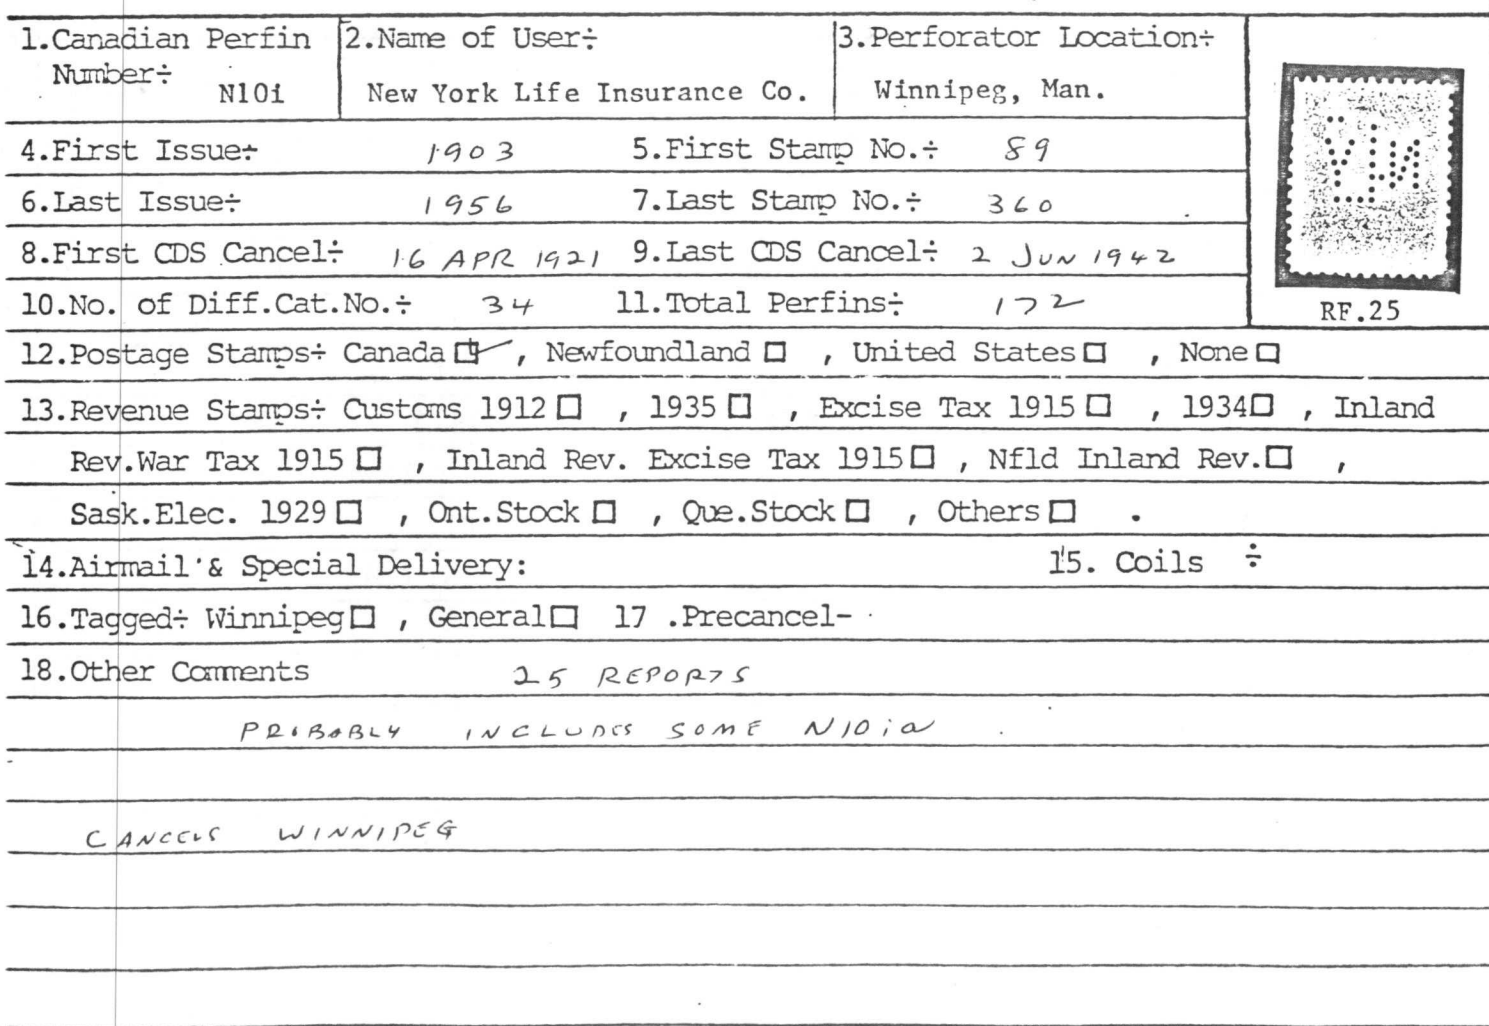 1.Canadian Perfin Number÷ N10i
2.Name of User÷ New York Life Insurance Co.
3.Perforator Location÷ Winnipeg, Man.
4.First Issue÷ 1903 5.First Stamp No.÷ 89
6.Last Issue÷ 1956 7.Last Stamp No.÷ 360
8.First CDS Cancel÷ 16 APR 1921 9.Last CDS Cancel÷ 2 JUN 1942
10.No. of Diff.Cat.No.÷ 34 11.Total Perfins÷ 172
RF.25
12.Postage Stamps÷ Canada ☑, Newfoundland □ , United States □ , None □
13.Revenue Stamps÷ Customs 1912 □ , 1935 □ , Excise Tax 1915 □ , 1934 □ , Inland
Rev.War Tax 1915 □ , Inland Rev. Excise Tax 1915 □ , Nfld Inland Rev. □ ,
Sask.Elec. 1929 □ , Ont.Stock □ , Que.Stock □ , Others □ .
14.Airmail & Special Delivery: 15. Coils ÷
16.Tagged÷ Winnipeg □ , General □ 17 .Precancel-
18.Other Comments 25 REPORTS
PROBABLY INCLUDES SOME N10ia
CANCELS WINNIPEG